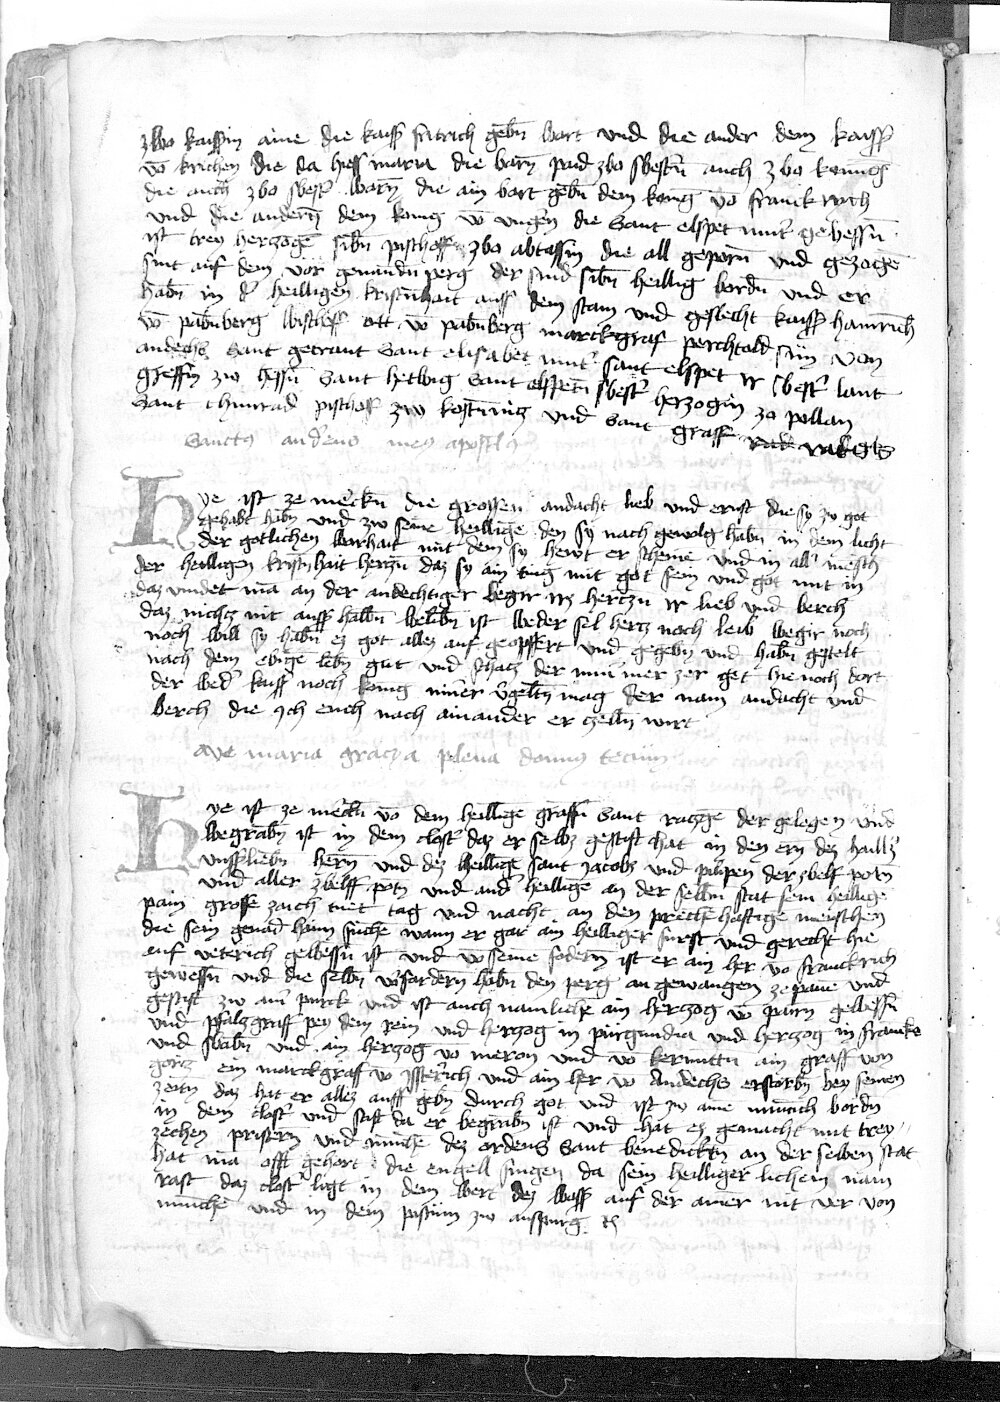 zwo kaissin aine die kaiss fritrich gebn wart und die ander dem kaiss
vo krichen die da hess maria die warn paid zwo swestn auch zwo konnig
die auch zwo swest warn die ain wart gebn dem konig vo franckrich
und die anderē dem konig vo ungern die Sant elspet mut gewessn
ist trey herzoge sibn pischoff zwo abtassin die all geporn und gezoge
sint auf dem vor genandn perg der sind sibn heillig wordn und er
habn in d heilligen kristnhait auss dem stam und geslecht kaiss hainrich
vo pabnberg bischoff ott vo pabnberg marckgraf perchtold sun von
andechs Sant getraut Sant elisabet mut sant elspet ir swest lant
greffin zw hessn Sant hetwig Sant elspetn swest herzogin zo pollan
Sant chunrad pischof zw kostnitz und Sant graff rasso
Sanctus andreus meus apostlo
Hye ist ze merckn die grossen andacht lieb und ernst die sy zu got
gehabt habn und zw seine heillige den sy nach gevolg habn in dem licht
der gotlichen warhait mit dem sy hewt er scheine und in all mensch
der heilligen kristnhait herzn daz sy ain ding mit got sein und got mit in
daz vindet ma an der andechtiger begir irs herczn ir lieb und werch
daz nichcz nit auss halbn belibn ist weder sel hercz noch leib begir noch
noch will sy habn ez got allez auf geopffert und gegebn und habn gestelt
nach dem ewige lebn gut und schacz der nim mer zer get hie noch dort
der wed kaiss noch konig nimer vgeltn mag der nam andacht und
werch die ich euch nach ainander er czelln wirt
ave maria gracya plena domnus tecum
Hye ist ze merckn vo dem heillige graffn Sant raczge der gelegen und
begrabn ist in dem clost daz er selbs gestift hat in den ern dez haills
unssliebn hern und dez heillige sant Jacobs und philipen der zwelf potn
und aller zwelff potn und and heillige an der selbn stat sein heillige
pain grosse zaich tuet tag und nacht an den preche haftige menschen
die sein genad haim suche wann er gar ain heilliger furst und gerecht hie
auf veterich gewessn ist und vo seine fodern ist er ain her vo franckrich
gewessn und die selbn vofordern habn den perg an gewangen ze paue und
gestift zw ain purck und ist auch namlich ain herczog vo pairn gewessn
und pfalzgraff pey dem Rein und herczog in purgundia und herczog in francke
und swabn und ain herczog vo meron und vo kernttn ain graff von
gorcz ein marckgraff vo Issterich und ain her vo Andechs erstorbn bey seinen
zeitn daz hat er allez auff gebn durch got und ist zw aine munich wordn
in dem clost und stift da er begrabn ist und hat ez gemacht mit trey
zechen pristern und munche dez ordens Sant benedicktn an der selben stat
hat ma offt gehort die engell singen da sein heilliger lichem nam
rast daz clost ligt in dem wert dez wass auf der amer nit ver von
munche und in dem pistum zw auspurg